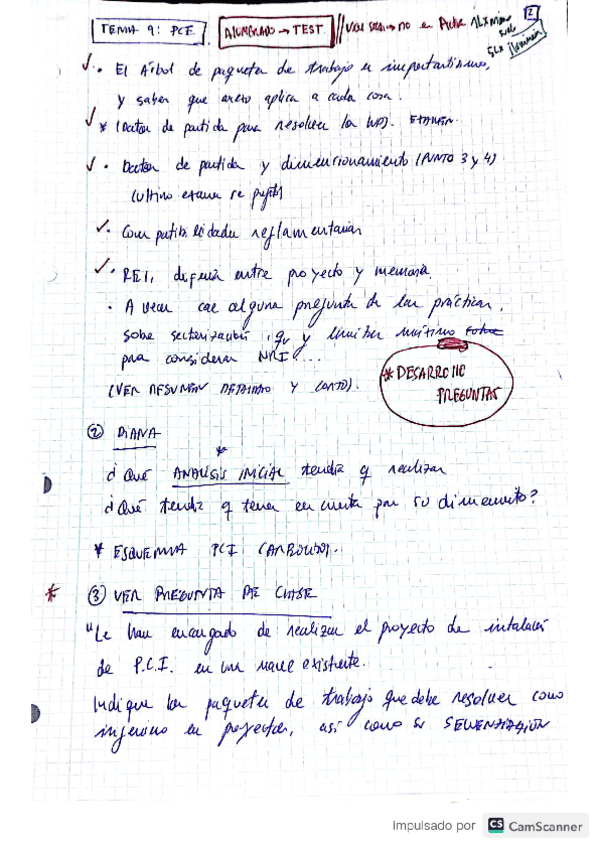 TEMA 9: PCI. ALUMBRADO → TEST // no en Ficha 1Lx 2
5Lx
• El Árbol de paquetes de trabajo es importantísimo,
y saber que anexo aplica a cada cosa.
* (Datos de partida para resolver los WP). EXAMEN.
• Datos de partida y dimensionamiento (PUNTO 3 y 4)
(ultimo examen se
• Compatibilidades reglamentarias
• RETI, entre proyecto y memoria.
• A veces cae alguna pregunta de las prácticas,
sobre sectorización, y
para considerar NRI ...
(VER RESUMEN DETALLADO Y CORTO).
* DESARROLLO
PREGUNTAS
② DIANA
¿Qué ANALISIS INICIAL tendría q realizar
¿Qué tendría q tener en cuenta para su
* ESQUEMA PCI
* ③ VER PREGUNTA DE CLASE
"Le han encargado de realizar el proyecto de instalación
de P.C.I. en una nave existente.
Indique los paquetes de trabajo que debe resolver como
ingeniero en proyectos, así como su SECUENCIACION
Impulsado por CS CamScanner